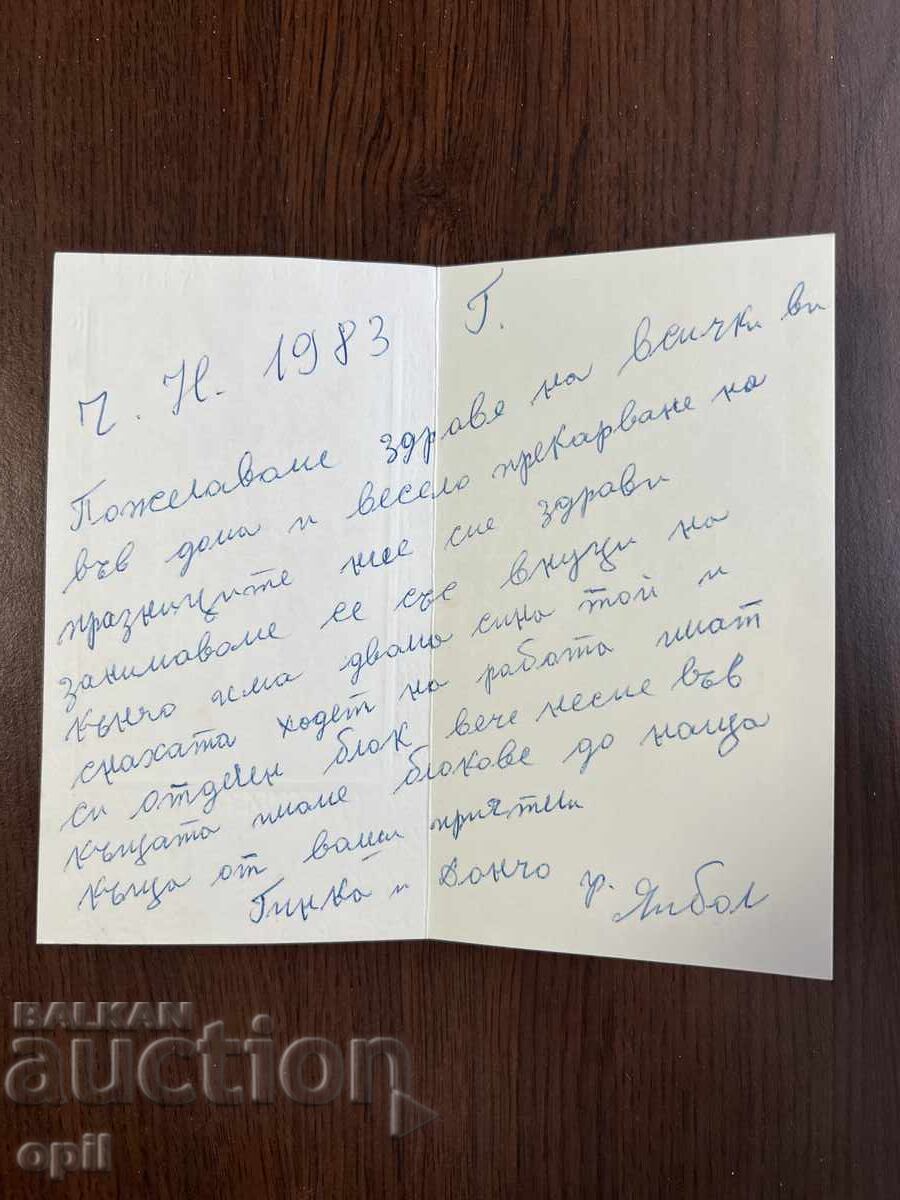 Ч. Н. 1983 Г.
Пожелаваме здраве на всички ви
във дома и весело прекарване на
празниците ние сме здрави
занимаваме се със внуци на
Кънчо има двама сина той и
снахата ходет на работа имат
си отделен блок вече несме във
къщата имаме блокове до наща
къща от ваши приятели
Гинка и Дончо гр. Ямбол
BALKAN
auction
opil